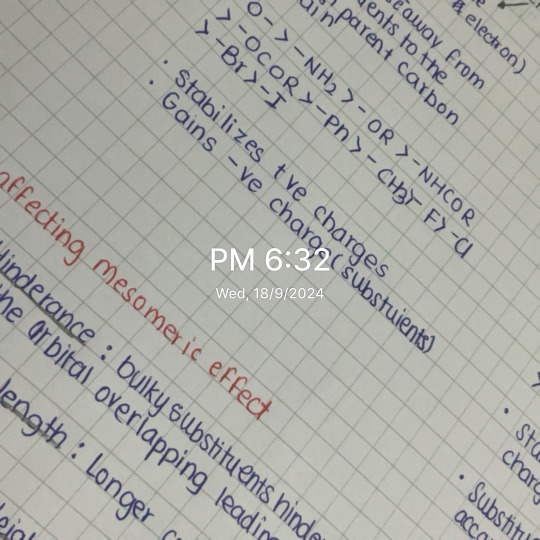 e away from
& electron)
ents to the
parent carbon
ain
O- > -NH₂ > -OR > -NHCOR
> -OCOR > -Ph > -CH₃ > -F > -Cl
> -Br > -I
• Stabilizes +ve charges
• Gains -ve charge (substuients)
PM 6:32
Wed, 18/9/2024
affecting mesomeric effect
Hinderance : bulky substituents hinde
the orbital overlapping leading
length : Longer co
• sta
charg
• Substitu
acc